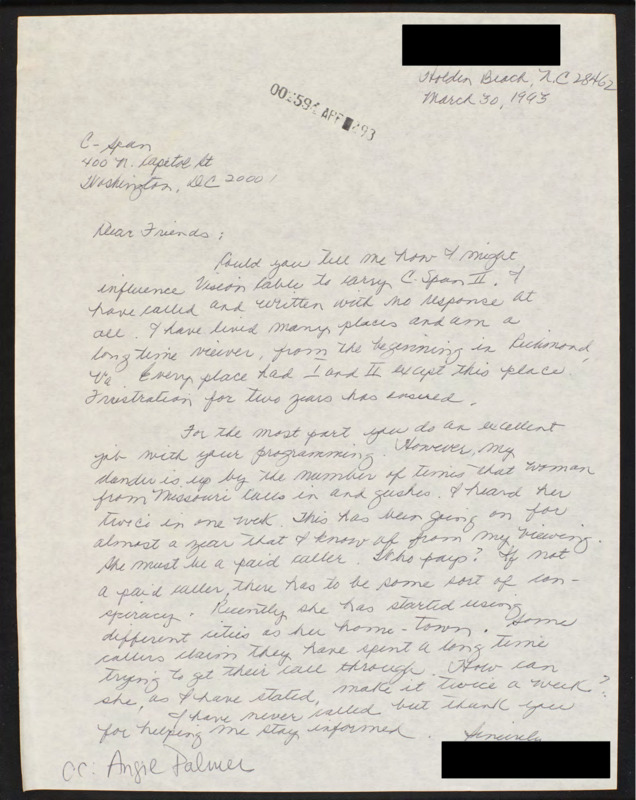 Holden Beach, N.C 28462
March 30, 1993
C-Span
400 N. Capitol St
Washington, DC 20001
Dear Friends:
Could you tell me how I might
influence Vision Cable to carry C-Span II. I
have called and written with no response at
all. I have lived many places and am a
long time viewer, from the beginning in Richmond,
Va. Every place had I and II except this place.
Frustration for two years has ensued.
For the most part you do an excellent
job with your programming. However, my
dander is up by the number of times that woman
from Missouri calls in and gushes. I heard her
twice in one week. This has been going on for
almost a year that I know of from my viewing.
She must be a paid caller. Who pays? If not
a paid caller, there has to be some sort of con-
spiracy. Recently she has started using
different cities as her home-town. Some
callers claim they have spent a long time
trying to get their call through. How can
she, as I have stated, make it twice a week?
I have never called but thank you
for helping me stay informed.
Sincerely
cc: Angie Palmer